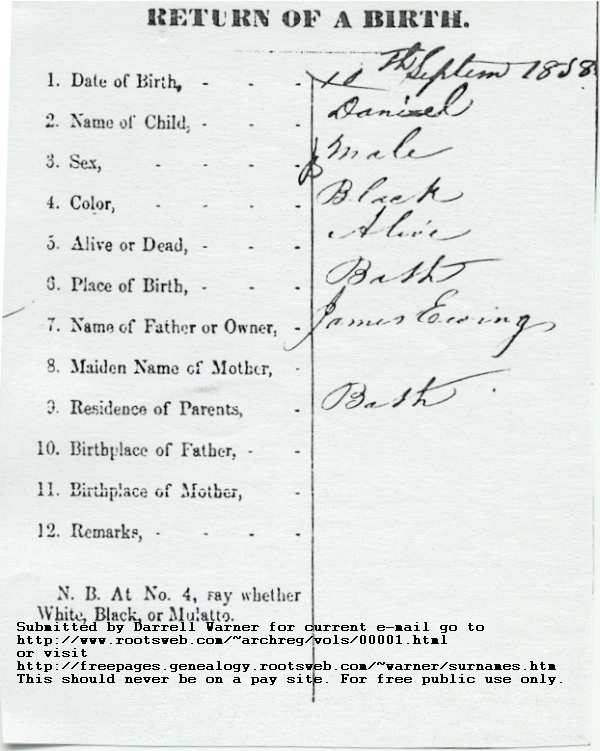 RETURN OF A BIRTH.
1. Date of Birth, - - - 10th Septem 1858
2. Name of Child, - - - Daniel
3. Sex, - - - - Male
4. Color, - - - - Black
5. Alive or Dead, - - - Alive
6. Place of Birth, - - - Bath
7. Name of Father or Owner, - James Ewing
8. Maiden Name of Mother, -
9. Residence of Parents, - Bath
10. Birthplace of Father, - -
11. Birthplace of Mother, -
12. Remarks, - - - -
N. B. At No. 4, say whether
White, Black, or Mulatto.
Submitted by Darrell Warner for current e-mail go to
http://www.rootsweb.com/~archreg/vols/00001.html
or visit
http://freepages.genealogy.rootsweb.com/~warner/surnames.htm
This should never be on a pay site. For free public use only.